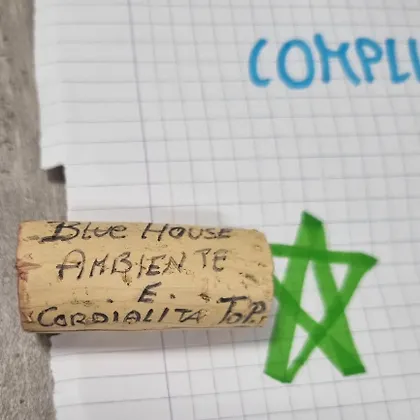 COMPLI
Blue House
AMBIENTE
.E.
CORDIALITA TOP.